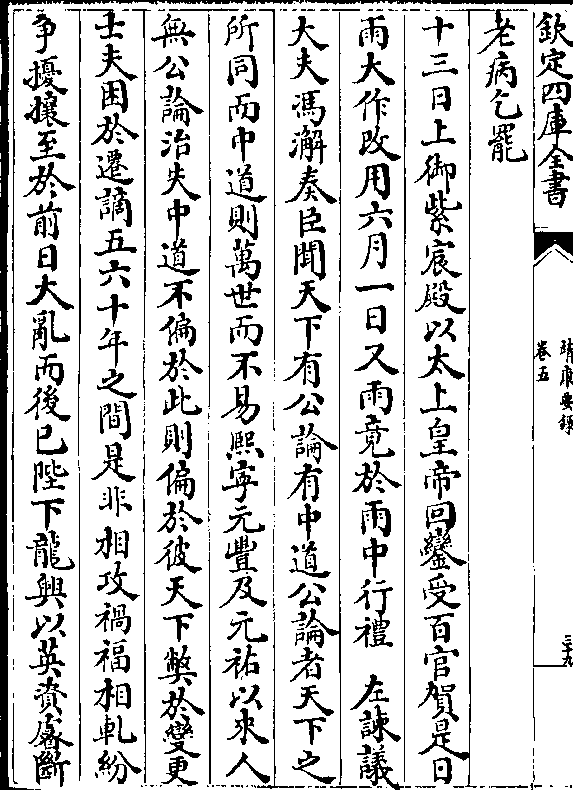 欽定四庫全書
靖康要錄
卷五
三十九
老病乞罷
十三日上御紫宸殿以太上皇帝回鑾受百官賀是日
雨大作改用六月一日又雨竟於雨中行禮　左諫議
大夫馮澥奏臣聞天下有公論有中道公論者天下之
所同而中道則萬世而不易熙寧元豐及元祐以來人
無公論治失中道不偏於此則偏於彼天下獘於變更
士夫困於遷謫五六十年之間是非相攻禍福相軋紛
争擾攘至於前日大亂而後已陛下龍興以英資睿斷